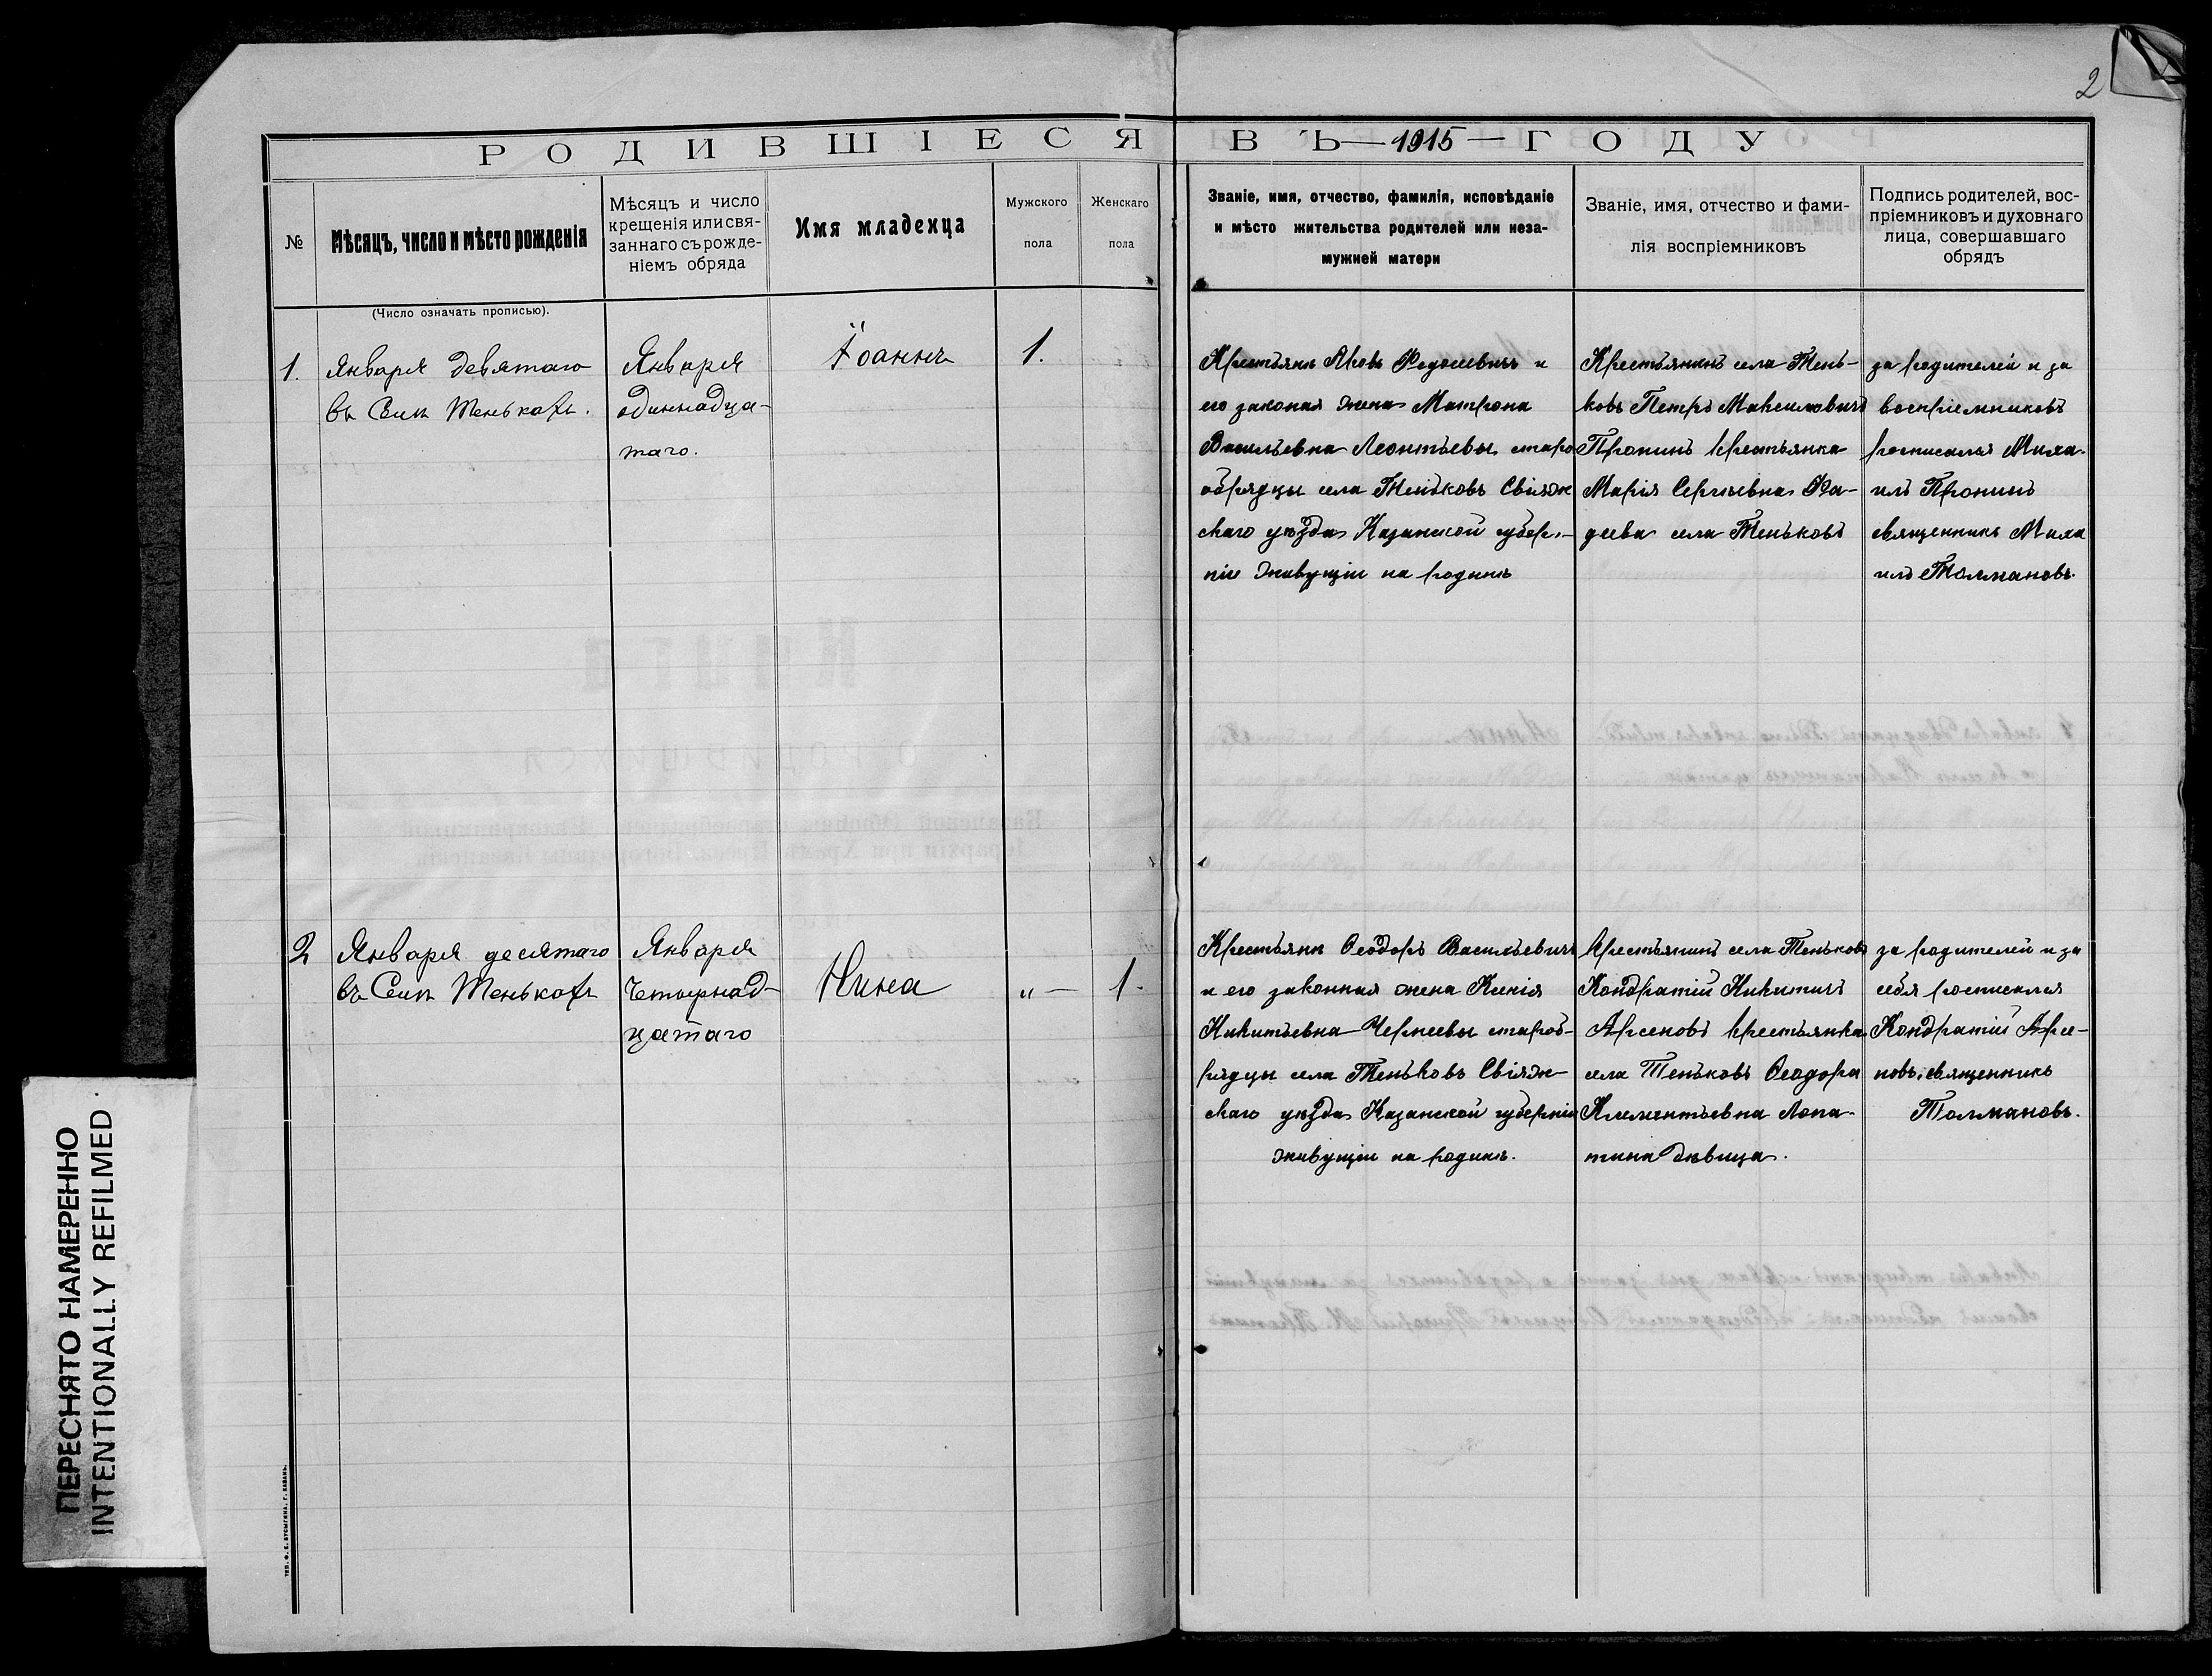 2
РОДИВШІЕСЯ ВЪ — 1915 — ГОДУ
№
Мѣсяцъ, число и мѣсто рожденія
Мѣсяцъ и число
крещенія или свя-
заннаго съ рожде-
ніемъ обряда
Имя младенца
Мужского
пола
Женскаго
пола
Званіе, имя, отчество, фамилія, исповѣданіе
и мѣсто жительства родителей или неза-
мужней матери
Званіе, имя, отчество и фами-
лія воспріемниковъ
Подпись родителей, вос-
пріемниковъ и духовнаго
лица, совершавшаго
обрядъ
(Число означать прописью).
1.
Января девятаго
въ Селѣ Тенькахъ.
Января
одиннадца-
таго.
Іоаннъ
1.
Крестьянъ Яковъ Федосеевичъ и
его законая жена Матрона
Васильевна Леонтьевы, старо
обрядцы села Теньковъ Свіяж
скаго уѣзда Казанской губер-
ніи живущіи на родинѣ
Крестьянинъ села Тень-
ковъ Петръ Максимовичъ
Пронинъ крестьянка
Марія Сергеевна Фа-
деева села Теньковъ
за родителей и за
воспріемниковъ
росписался Миха-
илъ Пронинъ
священникъ Миха
илъ Толмановъ.
2
Января десятаго
въ Селѣ Тенькахъ
Января
Четырнад-
цатаго
Нина
„ —
1.
Крестьянъ Ѳеодоръ Васильевичъ
и его законная жена Ксенія
Никитьевна Чернеевы староб-
рядцы села Теньковъ Свіяж-
скаго уѣзда Казанской губерніи
живущіи на родинѣ.
Крестьянинъ села Теньковъ
Кондратій Никитичъ
Арсеновъ крестьянка
села Теньковъ Ѳеодора
Клементьевна Лопа-
тина дѣвица.
за родителей и за
себя росписался
Кондратій Арсе-
новъ, священникъ
Толмановъ.
ПЕРЕСНЯТО НАМЕРЕННО
INTENTIONALLY REFILMED